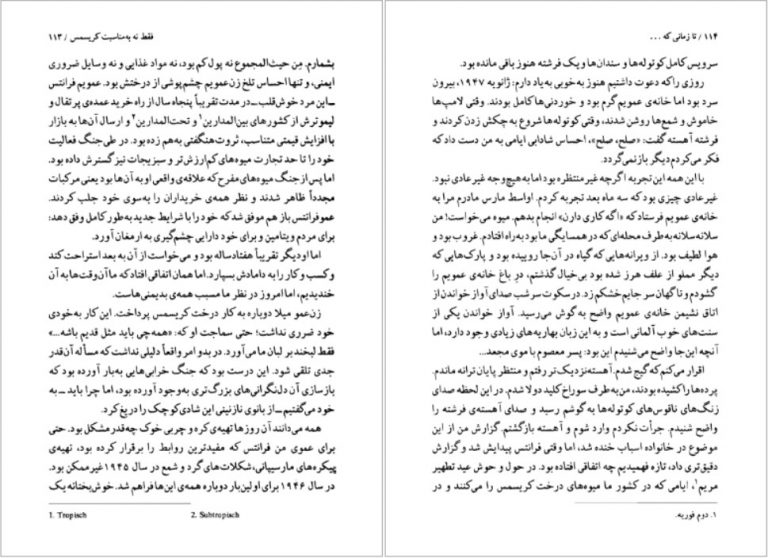 فقط نه به‌مناسبت کریسمس / ۱۱۳
بشمارم. مِن حیث‌المجموع نه پول کم بود، نه مواد غذایی و نه وسایل ضروری
ایمنی، و تنها احساس تلخ زن عمویم چشم‌پوشی از درختش بود. عمویم فرانتس
ــ این مرد خوش‌قلب ــ در مدت تقریباً پنجاه سال از راه خرید عمده‌ی پرتقال و
لیموترش از کشورهای بین‌المدارین۱ و تحت‌المدارین۲ و ارسال آن‌ها به بازار
با افزایش قیمتی متناسب، ثروت هنگفتی به‌هم زده بود. در طی جنگ فعالیت
خود را تا حد تجارت میوه‌های کم‌ارزش‌تر و سبزیجات نیز گسترش داده بود.
اما پس از جنگ میوه‌های مفرح که علاقه‌ی واقعی او به آن‌ها بود یعنی مرکبات
مجدداً ظاهر شدند و نظر همه‌ی خریداران را به‌سوی خود جلب کردند.
عمو فرانتس باز هم موفق شد که خود را با شرایط جدید به‌طور کامل وفق دهد:
برای مردم ویتامین و برای خود دارایی چشم‌گیری به ارمغان آورد.
اما او دیگر تقریباً هفتادساله بود و می‌خواست از آن به بعد استراحت کند
و کسب و کار را به دامادش بسپارد. اما همان اتفاقی افتاد که ما آن وقت‌ها به آن
خندیدیم، اما امروز در نظر ما مسبب همه‌ی بدیمنی‌هاست.
زن‌عمو میلا دوباره به کار درخت کریسمس پرداخت. این کار به‌خودی
خود ضرری نداشت؛ حتی سماجت او که: «همه‌چی باید مثل قدیم باشه...»
فقط لبخند بر لبان ما می‌آورد. در بدو امر واقعاً دلیلی نداشت که مسأله آن‌قدر
جدی تلقی شود. این درست بود که جنگ خرابی‌هایی به‌بار آورده بود که
بازسازی آن دل‌نگرانی‌های بزرگ‌تری به‌وجود آورده بود، اما چرا باید ــ به
خود می‌گفتیم ــ از بانوی نازنینی این شادی کوچک را دریغ کرد.
همه می‌دانند آن روزها تهیه‌ی کره و چربی خوک چه‌قدر مشکل بود. حتی
برای عموی من فرانتس که مفیدترین روابط را برقرار کرده بود، تهیه‌ی
پیکره‌های مارسیپانی، شکلات‌های گرد و شمع در سال ۱۹۴۵ غیرممکن بود.
در سال ۱۹۴۶ برای اولین‌بار دوباره همه‌ی این‌ها فراهم شد. خوش‌بختانه یک
1. Tropisch 2. Subtropisch
۱۱۴ / تا زمانی که ...
سرویس کامل کوتوله‌ها و سندان‌ها و یک فرشته هنوز باقی مانده بود.
روزی را که دعوت داشتیم هنوز به‌خوبی به یاد دارم: ژانویه ۱۹۴۷، بیرون
سرد بود اما خانه‌ی عمویم گرم بود و خوردنی‌ها کامل بودند. وقتی لامپ‌ها
خاموش و شمع‌ها روشن شدند، وقتی کوتوله‌ها شروع به چکش زدن کردند و
فرشته آهسته گفت: «صلح، صلح»، احساس شادابی ایامی به من دست داد که
فکر می‌کردم دیگر باز نمی‌گردد.
با این همه این تجربه اگرچه غیرمنتظره بود اما به هیچ‌وجه غیرعادی نبود.
غیرعادی چیزی بود که سه ماه بعد تجربه کردم. اواسط مارس مادرم مرا به
خانه‌ی عمویم فرستاد که «اگه کاری دارن» انجام بدهم. میوه می‌خواست! من
سلانه‌سلانه به‌طرف محله‌ای که در همسایگی ما بود به راه افتادم. غروب بود و
هوا لطیف بود. از ویرانه‌هایی که گیاه در آن‌جا روییده بود و پارک‌هایی که
دیگر مملو از علف هرز شده بود بی‌خیال گذشتم، درِ باغ خانه‌ی عمویم را
گشودم و ناگهان سر جایم خشکم زد. در سکوت سر شب صدای آواز خواندن از
اتاق نشیمن خانه‌ی عمویم واضح به گوش می‌رسید. آواز خواندن یکی از
سنت‌های خوب آلمانی است و به این زبان بهاریه‌های زیادی وجود دارد، اما
آنچه این‌جا واضح می‌شنیدم این بود: پسر معصوم با موی مجعد...
اقرار می‌کنم که گیج شدم. آهسته نزدیک‌تر رفتم و منتظر پایان ترانه ماندم.
پرده‌ها را کشیده بودند، من به‌طرف سوراخ کلید دولا شدم. در این لحظه صدای
زنگ‌های ناقوس‌های کوتوله‌ها به گوشم رسید و صدای آهسته‌ی فرشته را
واضح شنیدم. جرأت نکردم وارد شوم و آهسته بازگشتم. گزارش من از این
موضوع در خانواده اسباب خنده شد، اما وقتی فرانتس پیدایش شد و گزارش
دقیق‌تری داد، تازه فهمیدیم چه اتفاقی افتاده بود. در حول و حوش عید تطهیر
مریم۱، ایامی که در کشور ما میوه‌های درخت کریسمس را می‌کنند و در
۱. دوم فوریه.